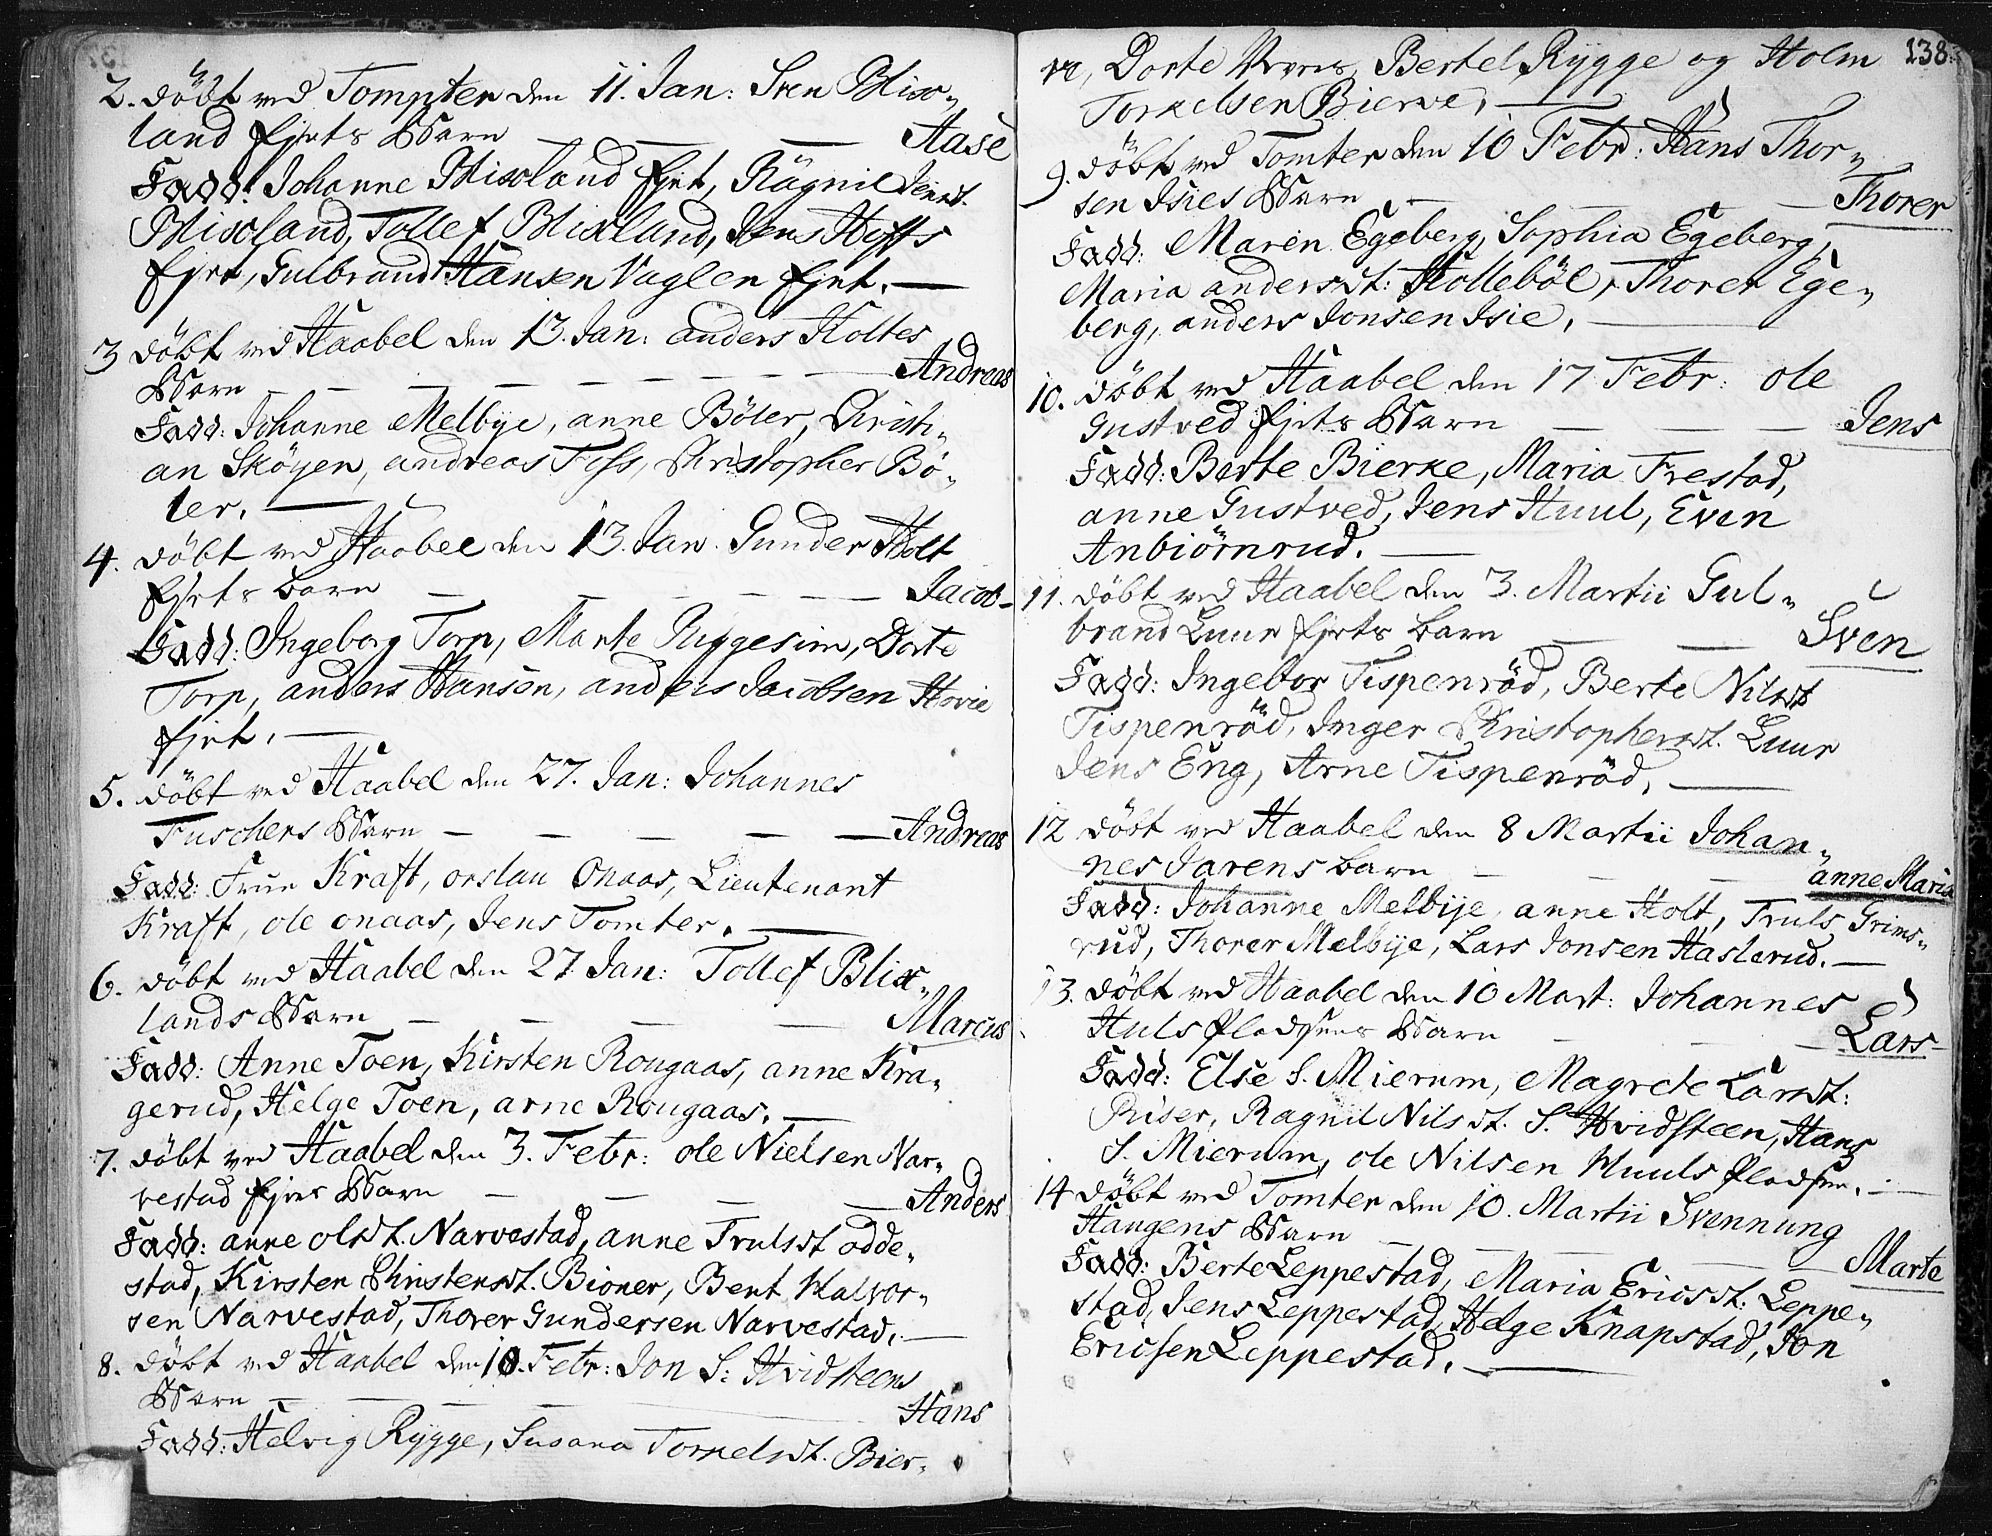 2. döbt ved Tompter den 11. Jan: Sven Blix-
land fjrts Barn — — — Aase
Fadd: Johanne Blixland fjrt, Ragnil Jensd.
Blixland, Tollef Blixland, Jens Hoffs
fjrt, Gulbrand Hansen Vaglen fjrt. —
3 döbt ved Haabel den 13. Jan: anders Holtes
Barn — — — — Andreas
Fadd: Johanne Melbye, anne Böler, Christi-
an Sköyen, andreas Foss, Christopher Bö-
ler. —
4. döbt ved Haabel den 13. Jan. Gunder Holt
fjrts barn — — — — Jacob
Fadd: Ingeborg Torp, Marte Ruggesim, Dorte
Torp, anders Hansen, anders Jacobsen Hovie
fjrt. —
5. döbt ved Haabel den 27. Jan: Johannes
Fuschers Barn — — — — Andreas
Fadd: Frue Kraft, onslau Onaas, Lieutenant
Kraft, ole onaas, Jens Tomter. —
6. döbt ved Haabel den 27. Jan: Tollef Blix-
lands Barn — — — — Marcus
Fadd: Anne Toen, Kirsten Rougaas, anne Kra-
gerud, Helge Toen, arne Rougaas. —
7. döbt ved Haabel den 3. Febr: ole Nielsen Nar-
vestad fjrts Barn — — — — Anders
Fadd: anne olsd. Narvestad, anne Trulsd. odde-
stad, Kirsten Christensd. Bioner, Bent Halvor-
sen Narvestad, Thorer Gundersen Narvestad. —
8. döbt ved Haabel den 10. Febr: Jon S: Hvidsteens
Barn — — — — Hans
Fadd: Helvig Rygge, Susana Torkelsd. Bier-
138.
ke, Dorte Bertel Rygge og Holm
Torkelsen Bierke, —
9. döbt ved Tomter den 10 Febr: Hans Thor-
sen Isies Barn — — — Thorer
Fadd: Maren Egeberg, Sophia Egeberg,
Maria andersd: Holleböl, Thorer Ege-
berg, anders Jonsen Isie. —
10. döbt ved Haabel den 17 Febr: ole
Gustved fjrts Barn — — — Jens
Fadd: Berte Bierke, Maria Frestad,
anne Gustved, Jens Huul, Even
Anbiörnrud. —
11. döbt ved Haabel den 3. Martii Gul-
brand Luur fjrts barn — — Sven
Fadd: Ingebor Tispenröd, Berte Nilsd
Tispenröd, Inger Christophersd. Luur
Jens Eng, Arne Tispenröd. —
12 döbt ved Haabel den 8 Martii Johan-
nes Jarens barn — — — anne Maria
Fadd: Johanne Melbye, anne Holt, Truls Grims-
rud, Thorer Melbye, Lars Jonsen Haslerud. —
13. döbt ved Haabel den 10 Mart: Johannes
Huls Pladsens Barn — — — Lars
Fadd: Else S. Mierum, Magrete Larsd:
Riser, Ragnil Nilsd. S. Hvidsteen, Hans
S. Mierum, ole Nilsen Huuls Pladsen. —
14 döbt ved Tomter den 10. Martii Svennung
Haugens Barn — — — Marte
Fadd: Berte Leppestad, Maria Ericsd: Leppe-
stad, Jens Leppestad, Helge Knapstad, Jon
Ericsen Leppestad. —